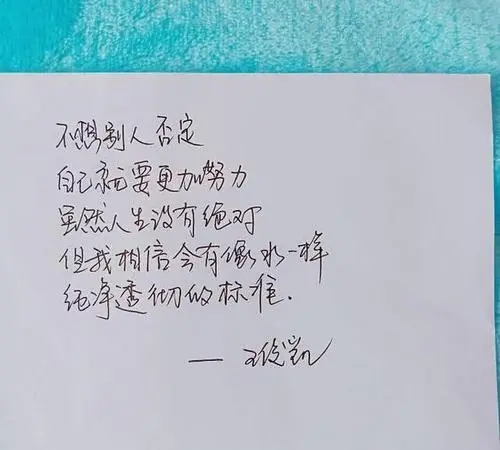 不想别人否定
自己就要更加努力
虽然人生没有绝对
但我相信会有像水一样
纯净透彻的标准.
— 王俊凯